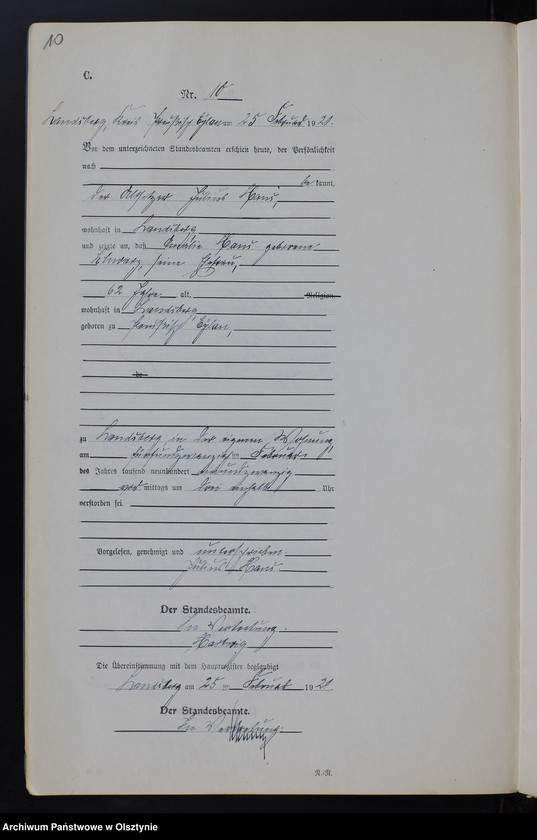 10
C.
Nr. 10
Landsberg, Kreis Preußisch Eylau am 25 Februar 1921.
Vor dem unterzeichneten Standesbeamten erschien heute, der Persönlichkeit
nach
be kannt,
der Altsitzer Julius
wohnhaft in Landsberg
und zeigte an, daß geborene
seine Ehefrau,
62 Jahre alt, Religion,
wohnhaft in Landsberg
geboren zu Preußisch Eylau,
de
zu Landsberg in der eigenen Wohnung
am fünfundzwanzigsten Februar
des Jahres tausend neunhundert einundzwanzig
vor mittags um drei einhalb Uhr
verstorben sei.
Vorgelesen, genehmigt und unterschrieben
Julius
Der Standesbeamte.
In Vertretung.
Die Übereinstimmung mit dem Hauptregister beglaubigt
Landsberg am 25 Februar 1921
Der Standesbeamte.
In Vertretung.
N.-R.
Archiwum Państwowe w Olsztynie